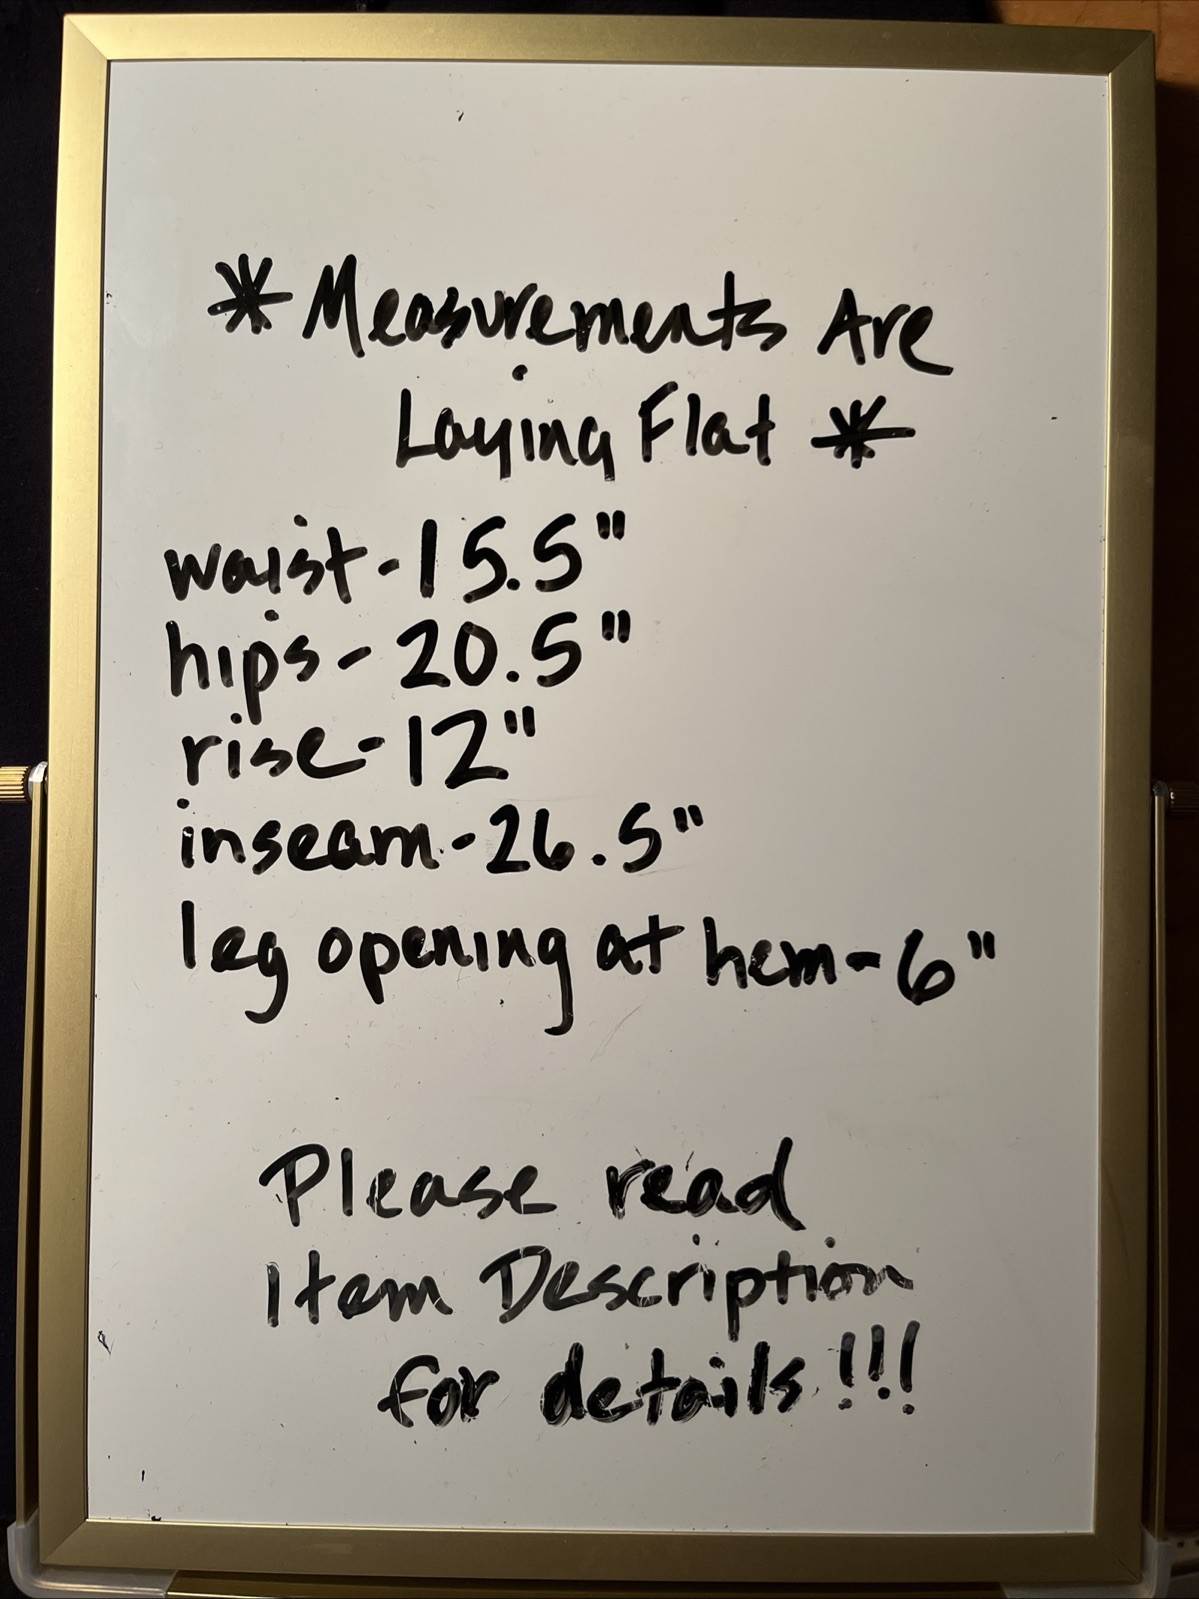 * Measurements Are
Laying Flat *
waist-15.5"
hips-20.5"
rise-12"
inseam-26.5"
leg opening at hem-6"
Please read
Item Description
for details!!!